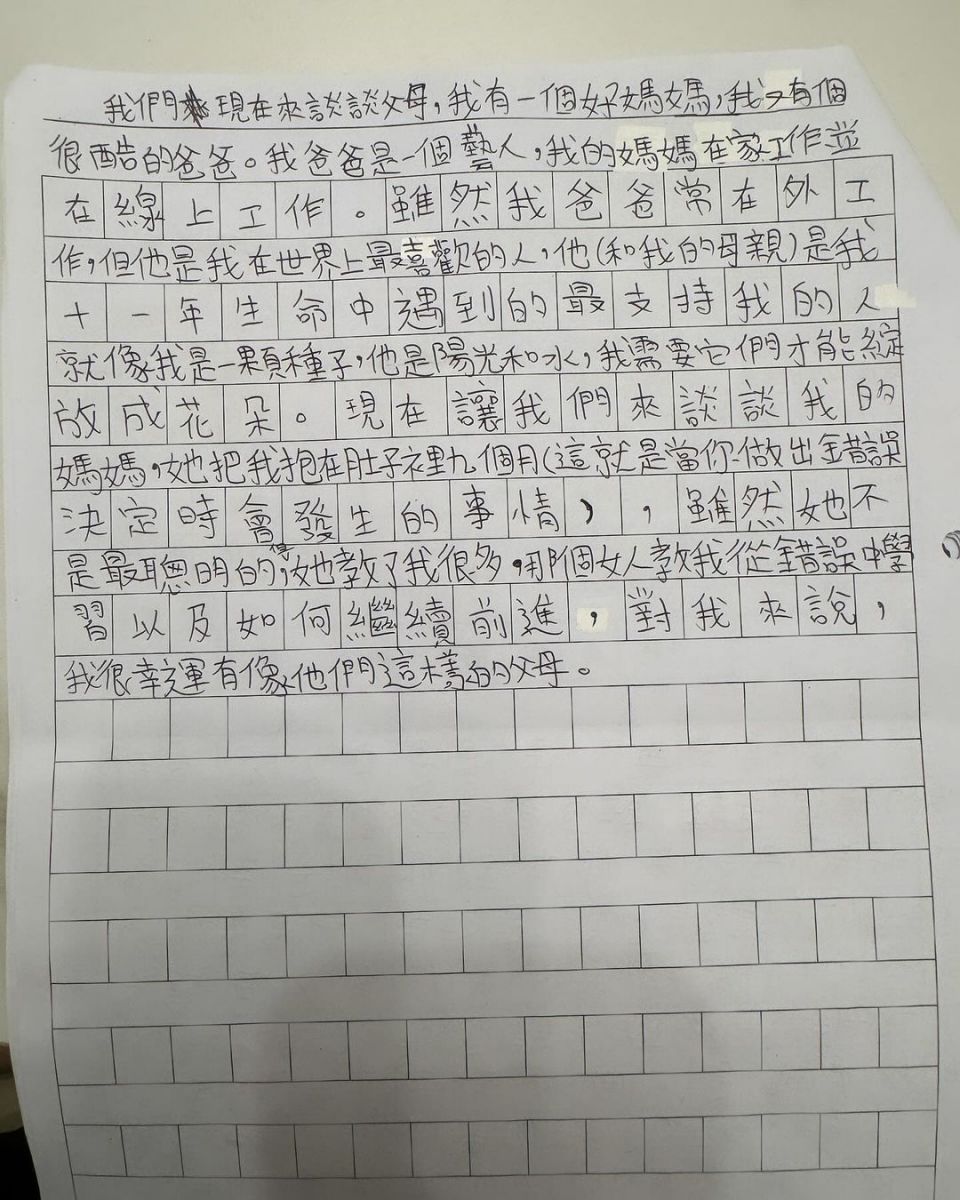 我們現在來談談父母，我有一個好媽媽，我又有個
很酷的爸爸。我爸爸是一個藝人，我的媽媽在家工作並
在線上工作。雖然我爸爸常在外工
作，但他是我在世界上最喜歡的人，他(和我的母親)是我
十一年生命中遇到的最支持我的人
就像我是一顆種子，他是陽光和水，我需要它們才能綻
放成花朵。現在讓我們來談談我的
媽媽，她把我抱在肚子裡九個月(這就是當你做出錯誤
決定時會發生的事情)，雖然她不
是最聰明的，她教了我很多。那個女人教我從錯誤中學
習以及如何繼續前進，對我來說，
我很幸運有像他們這樣的父母。